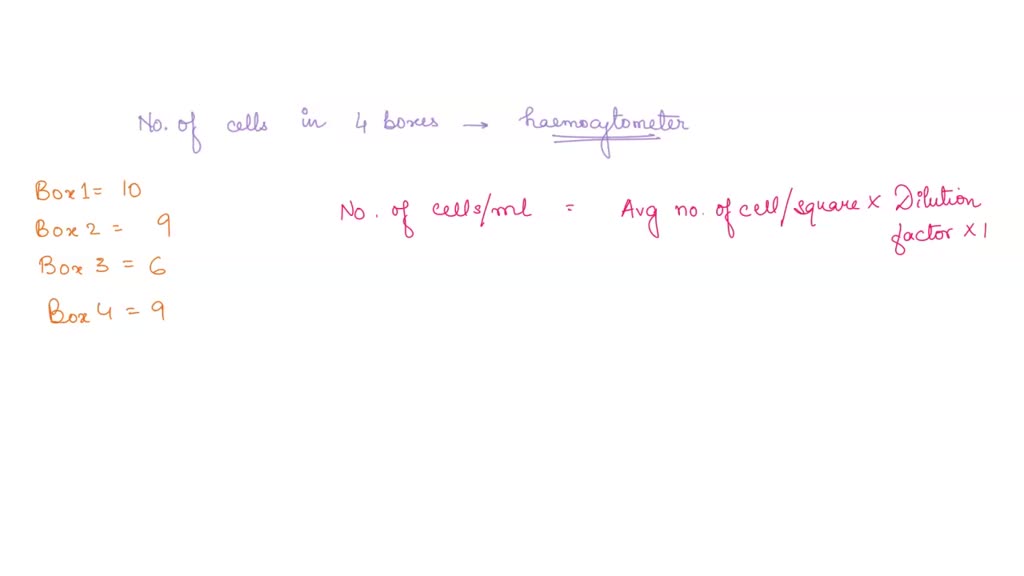 No. of cells in 4 boxes → haemocytometer
Box 1 = 10
Box 2 = 9
Box 3 = 6
Box 4 = 9
No. of cells/ml = Avg no. of cell/square × Dilution
factor × 1